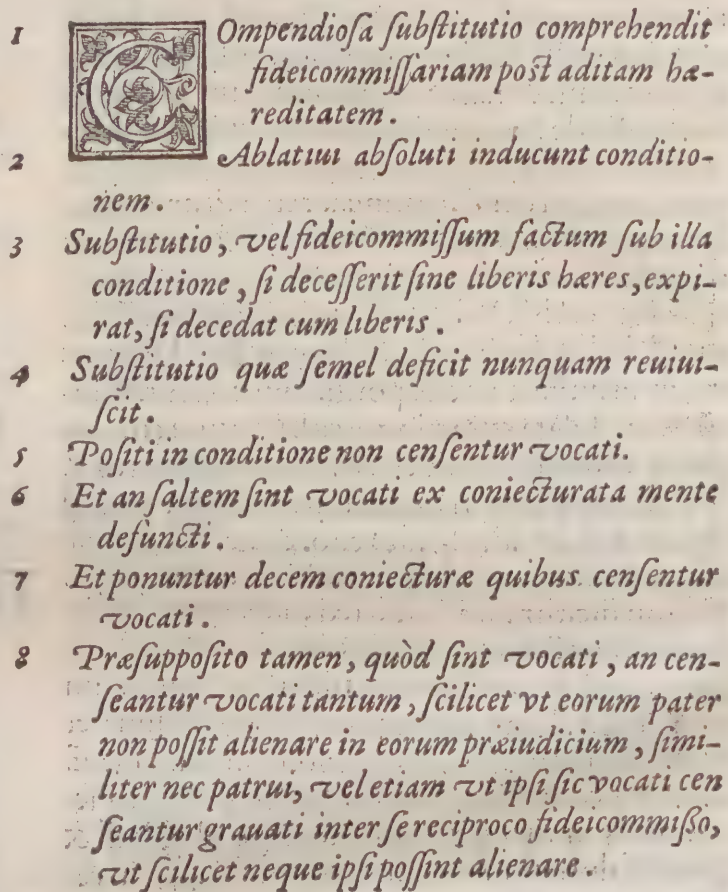 1 Compendioſa ſubſtitutio comprehendit
fideicommiſſariam poſt aditam hæ-
reditatem.
2 Ablatiui abſoluti inducunt conditio-
nem.
3 Subſtitutio, vel fideicommiſſum factum ſub illa
conditione, ſi deceſſerit ſine liberis hæres, expi-
rat, ſi decedat cum liberis.
4 Subſtitutio quæ ſemel deficit nunquam reuiui-
ſcit.
5 Poſiti in conditione non cenſentur vocati.
6 Et an ſaltem ſint vocati ex coniecturata mente
defuncti.
7 Et ponuntur decem coniecturæ quibus cenſentur
vocati.
8 Præſuppoſito tamen, quòd ſint vocati, an cen-
ſeantur vocati tantum, ſcilicet vt eorum pater
non poſſit alienare in eorum præiudicium, ſimi-
liter nec patrui, vel etiam vt ipſi ſic vocati cen
ſeantur grauati inter ſe reciproco fideicommißo,
vt ſcilicet neque ipſi poſſint alienare.